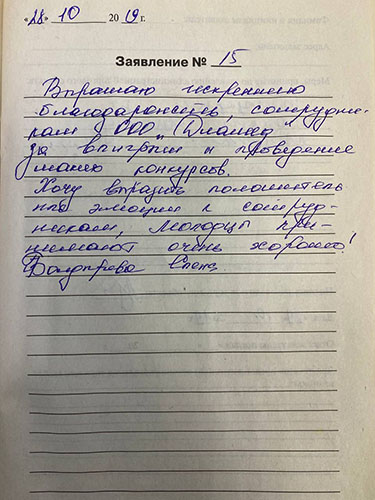 «28» 10 2019г.
Заявление № 15
Выражаю искреннюю
благодарность, сотрудни-
кам ООО „
за выигрыш и проведение
конкурсов.
Хочу выразить положитель
ные эмоции к сотруд-
никам, молодцы при-
нимают очень хорошо!
Елена